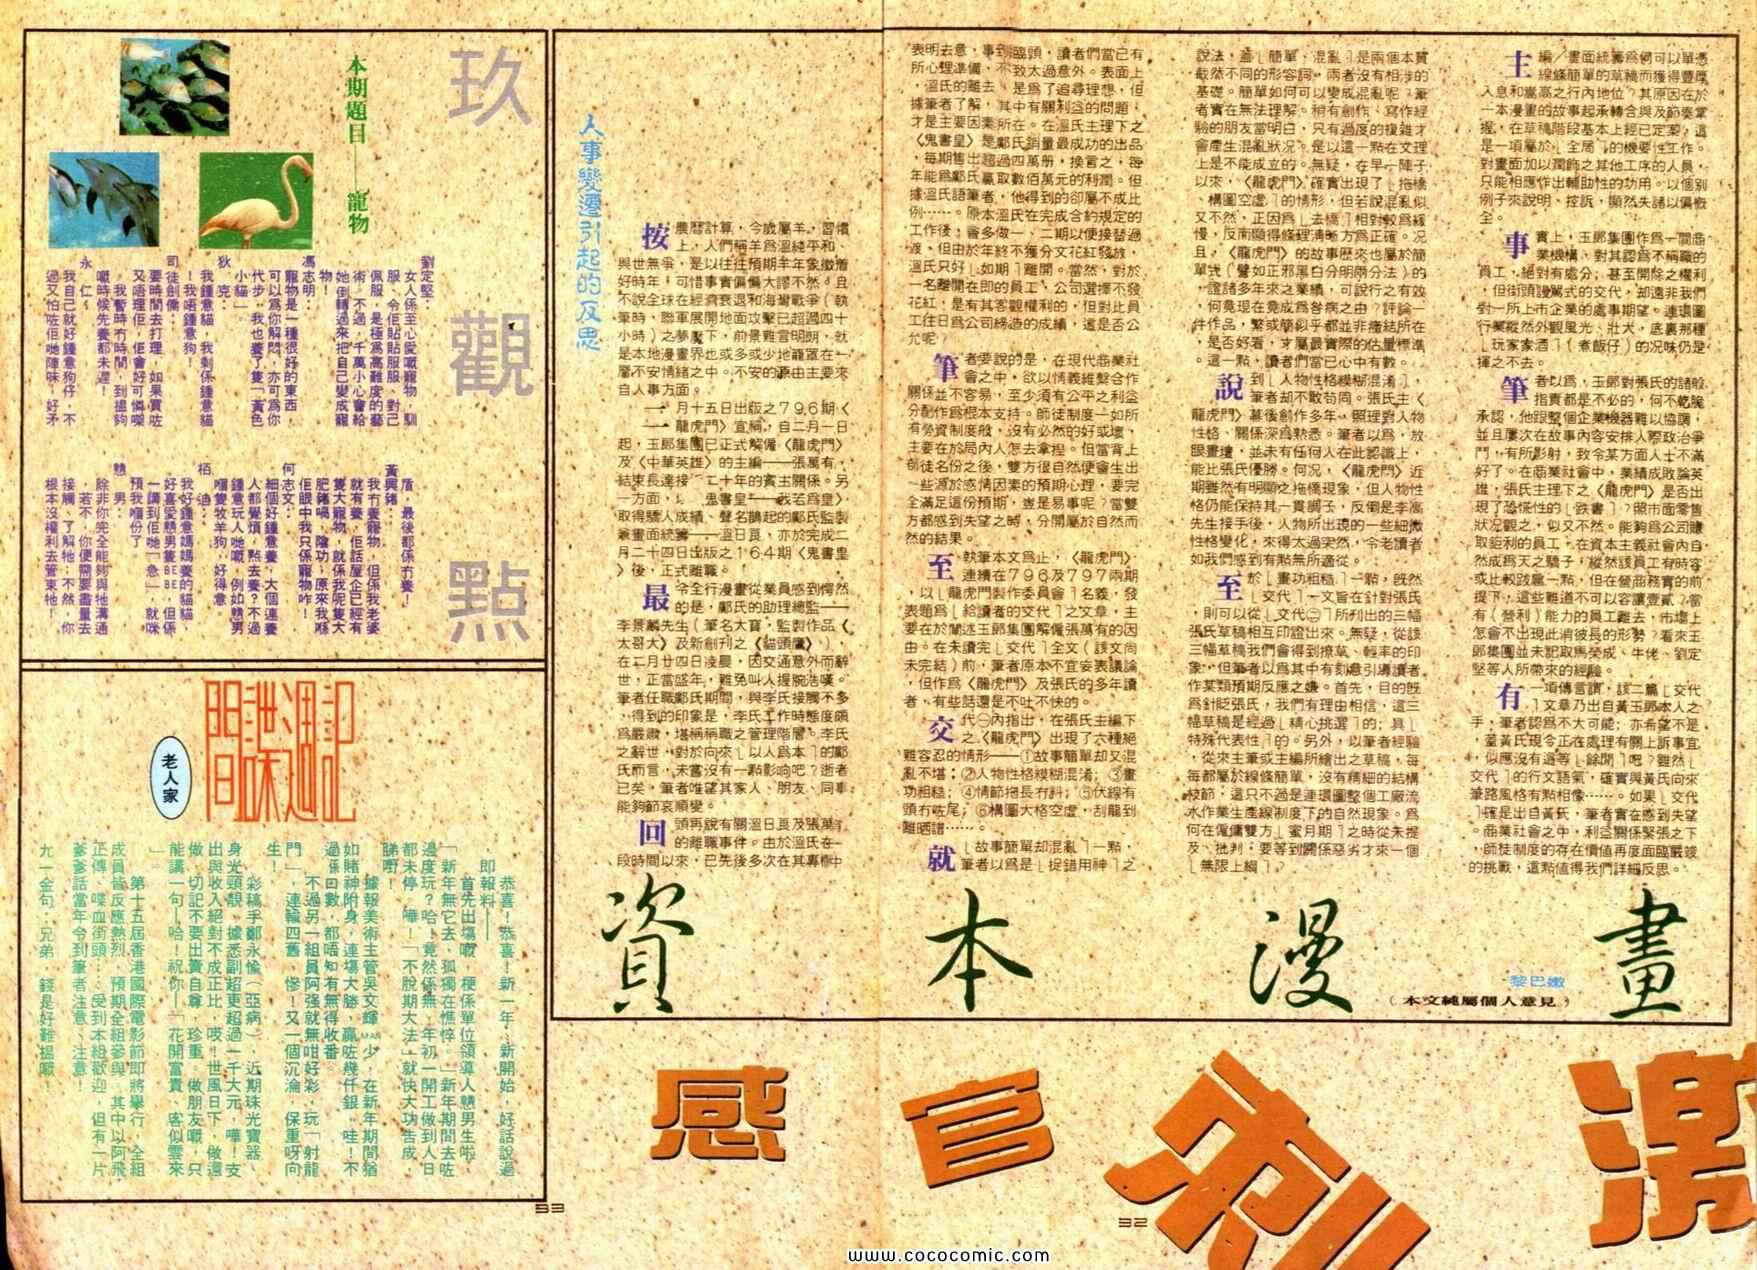 玖觀點
本期題目——寵物
劉定堅：
女人係至心愛嘅寵物，馴
服、令佢貼貼服服，對己
佩服，是極爲高難度的藝
術，不過，千萬小心會給
她倒轉過來把自己變成寵
物！
馮志明：
寵物是一種很好的東西，
可以爲你解悶，亦可爲你
代步，我也養了隻「黃色
小貓」。
狄　克：
我鍾意貓，我剩係鍾意貓
！我唔鍾意狗！
司徒劍僑：
要時間去打理，如果買咗
又唔理佢，佢會好可憐㗎
，我暫時冇時間，到搵夠
嘅時候先養都未遲！
永　仁：
我自己就好鍾意狗仔，不
過又怕咗佢哋陣味，好矛
盾，最後都係冇養！
黃興鍺：
我冇養寵物，但係我老婆
就有養，佢話屋企已經有
隻大寵物，就係我呢隻大
肥鍺喎，陰功，原來我喺
佢眼中我只係寵物咋！
何志文：
細個好鍾意養，大個連養
人都覺煩，點去養？不過
鍾意玩人哋嘅，例如戇男
嗰隻牧羊狗，好得意。
栢　迪：
我好鍾意媽媽養的貓貓，
好喜愛戇男隻BEBE，但係
一講到佢哋「急」，就咪
預我嗰份了。
戇　男：
除非你完全能夠與牠溝通
，若不，你便需要盡量去
接觸、了解牠；不然，你
根本沒權利去管束牠！
間諜週記
老人家
恭喜！恭喜！新一年，新開始，好話說過
，即報料——
首先出場嘅，梗係單位領導人戇男生啦，
「新年無它去，孤獨在憔悴。」新年期間去咗
邊度玩？哈！竟然係無，年初一開工做到人日
都未停，嘩！「不脫期大法」就快大功告成，
睇嘢！
據報美術主管吳文輝少，在新年期間猶
如賭神附身，連場大勝，贏咗幾仟銀，哇！不
過係回數，都唔知有無得收番。
不過另一組員阿强就無咁好彩，玩「射龍
門」，連輸四舊，慘！又一個沉淪，保重呀向
生！
彩稿手鄭永愉（亞病），近期珠光寶器，
身光頸靚，據悉副超更超過一千大元，嘩！支
出與收入絕對不成正比，吱！世風日下，做還
做，切記不要出賣自尊，珍重。做朋友嘅，只
能講一句—哈！祝你—「花開富貴、客似雲來
」
第十五屆香港國際電影節即將舉行，全組
成員皆反應熱烈，預期全組參與，其中以阿飛
正傳，喋血街頭…受到本組歡迎，但有一片
爹爹話當年令到筆者注意、注意！
尢一金句：兄弟，錢是好難搵嘅！
33
資本漫畫
黎巴嫩
（本文純屬個人意見）
主編／畫面統籌爲何可以單憑
線條簡單的草稿而獲得豐厚
入息和崇高之行內地位？其原因在於
一本漫畫的故事起承轉合與及節奏掌
握，在草稿階段基本上經已定案，這
是一項屬於「全局」的機要性工作。
對畫面加以潤飾之其他工序的人員，
只能相應作出輔助性的功用。以個別
例子來說明、控訴，顯然失諸以偏概
全。
事實上，玉郎集團作爲一間商
業機構，對其認爲不稱職的
員工，絕對有處分，甚至開除之權利
，但街頭謾罵式的交代，却遠非我們
對一所上市企業的處事期望。連環圖
行業縱然外觀風光、壯大，底裏那種
「玩家家酒」（煮飯仔）的況味仍是
揮之不去。
筆者以爲，玉郎對張氏的諸般
指責都是不必的，何不乾脆
承認，他跟整個企業機器難以協調，
並且屢次在故事內容安排人際政治爭
鬥，有所影射，致令某方面人士不滿
好了。在商業社會中，業績成敗論英
雄，張氏主理下之〈龍虎門〉是否出
現了恐慌性的「跌書」？照市面零售
狀況觀之，似又不然。能夠爲公司謙
取鉅利的員工，在資本主義社會內自
然成爲天之驕子，縱然該員工有時客
或比較跋扈一點，但在營商務實的前
提下，這些難道不可以容讓壹貳？當
有（營利）能力的員工離去，市場上
怎會不出現此消彼長的形勢？看來玉
郎集團並未記取馬榮成、牛佬、劉定
堅等人所帶來的經驗。
有一項傳言謂，該二篇「交代
」文章乃出自黃玉郎本人之
手，筆者認爲不大可能；亦希望不是
，蓋黃氏現今正在處理有關上訴事宜
，似應沒有這等「餘閒」吧？雖然「
交代」的行文語氣，確實與黃氏向來
筆路風格有點相像……。如果「交代
」確是出自黃氏，筆者實在感到失望
。商業社會之中，利益關係緊張之下
，師徒制度的存在價值再度面臨嚴竣
的挑戰，這點值得我們詳細反思。
說法，蓋「簡單、混亂」是兩個本質
截然不同的形容詞，兩者沒有相涉的
基礎。簡單如何可以變成混亂呢？筆
者實在無法理解。稍有創作、寫作經
驗的朋友當明白，只有過度的複雜才
會產生混亂狀況。是以這一點在文理
上是不能成立的。無疑，在早一陣子
以來，〈龍虎門〉確實出現了「拖橋
、構圖空虛」的情形，但若說混亂似
又不然，正因爲「去橋」相對較爲緩
慢，反而顯得條理清晰方爲正確。況
且，〈龍虎門〉的故事歷來也屬於簡
單式（譬如正邪黑白分明兩分法）的
，證諸多年來之業績，可說行之有效
，何竟現在竟成爲咎病之由？評論一
件作品，繁或簡似乎都並非癥結所在
，是否好看，才屬最實際的估量標準
。這一點，讀者們當已心中有數。
說到「人物性格模糊混淆」，
筆者却不敢苟同。張氏主〈
龍虎門〉幕後創作多年，照理對人物
性格、關係深爲熟悉。筆者以爲，放
眼畫壇，並未有任何人在此認識上，
能比張氏優勝。何況，〈龍虎門〉近
期雖然有明顯之拖橋現象，但人物性
格仍能保持其一貫調子，反倒是李寓
先生接手後，人物所出現的一些細微
性格變化，來得太過突然，令老讀者
如我們感到有點無所適從。
至於「畫功粗糙」一點，既然
「交代」一文旨在針對張氏
，則可以從「交代㊁」所刊出的三幅
張氏草稿相互印證出來。無疑，從該
三幅草稿我們會得到撩亂、輕率的印
象，但筆者以爲其中有刻意引導讀者
作某類預期反應之嫌。首先，目的既
爲針貶張氏，我們有理由相信，這三
幅草稿是經過「精心挑選」的；具「
特殊代表性」的。另外，以筆者經驗
，從來主筆或主編所繪出之草稿，每
每都屬於線條簡單，沒有精細的結構
枝節，這只不過是連環圖整個工廠流
水作業生產線制度下的自然現象。爲
何在僱傭雙方「蜜月期」之時從未提
及、批判，要等到關係惡劣才來一個
「無限上綱」？
表明去意，事到臨頭，讀者們當已有
所心理準備，不致太過意外。表面上
，溫氏的離去，是爲了追尋理想，但
據筆者了解，其中有關利益的問題，
才是主要因素所在。在溫氏主理下之
〈鬼書皇〉是鄺氏銷量最成功的出品
，每期售出超過四萬册，換言之，每
年能爲鄺氏贏取數佰萬元的利潤。但
據溫氏語筆者，他得到的卻屬不成比
例……。原本溫氏在完成合約規定的
工作後，會多做一、二期以便接替過
渡，但由於年終不獲分文花紅發放，
溫氏只好「如期」離開。當然，對於
一名離開在即的員工，公司選擇不發
花紅，是有其客觀權利的，但對比員
工往日爲公司締造的成績，這是否公
允呢？
筆者要說的是，在現代商業社
會之中，欲以情義維繫合作
關係並不容易，至少須有公平之利益
分配作爲根本支持。師徒制度一如所
有勞資制度般，沒有必然的好或壞，
主要在於局內人怎去拿捏。但當背上
師徒名份之後，雙方很自然便會生出
一些源於感情因素的預期心理，要完
全滿足這份預期，豈是易事呢？當雙
方都感到失望之時，分開屬於自然而
然的結果。
至執筆本文爲止，〈龍虎門〉
連續在796及797兩期
，以「龍虎門製作委員會」名義，發
表題爲「給讀者的交代」之文章，主
要在於闡述玉郎集團解僱張萬有的因
由。在未讀完「交代」全文（該文尚
未完結）前，筆者原本不宜妄表議論
，但作爲〈龍虎門〉及張氏的多年讀
者，有些話還是不吐不快的。
交代㊀內指出，在張氏主編下
之〈龍虎門〉出現了六種絕
難容忍的情形——①故事簡單却又混
亂不堪；②人物性格模糊混淆；③畫
功粗糙；④情節拖長冇料；⑤伏線有
頭冇咗尾；⑥構圖大格空虛，刮龍到
離晒譜……。
就「故事簡單却混亂」一點，
筆者以爲是「捉錯用神」之
人事變遷引起的反思
按農曆計算，今歲屬羊，習慣
上，人們稱羊爲溫綫平和、
與世無爭，是以往往預期羊年象徵着
好時年。可惜事實偏偏大謬不然。且
不說全球在經濟衰退和海灣戰爭（執
筆時，聯軍展開地面攻擊已超過四十
小時）之夢魘下，前景難言明朗，就
是本地漫畫界也或多或少地籠罩在一
層不安情緒之中。不安的源由主要來
自人事方面。
一月十五日出版之796期〈
龍虎門〉宣稱，自二月一日
起，玉郎集團已正式解僱〈龍虎門〉
及〈中華英雄〉的主編——張萬有，
結束長達接近二十年的賓主關係。另
一方面，以〈鬼書皇——我若爲皇〉
取得驕人成績、聲名鵲起的鄺氏監製
兼畫面統籌——溫日良，亦於完成二
月二十四日出版之164期〈鬼書皇
〉後，正式離職。
最令全行漫畫從業員感到愕然
的是，鄺氏的助理總監——
李景麟先生（筆名大寶，監製作品〈
太哥大〉及新創刊之〈貓頭鷹〉），
在二月廿四日凌晨，因交通意外而辭
世，正當盛年，難免叫人扼腕浩嘆。
筆者任職鄺氏期間，與李氏接觸不多
，得到的印象是，李氏工作時態度頗
爲嚴肅，堪稱稱職之管理階層。李氏
之辭世，對於向來「以人爲本」的鄺
氏而言，未嘗沒有一點影响吧？逝者
已矣，筆者唯望其家人、朋友、同事
能夠節哀順變。
回頭再說有關溫日良及張萬有
的離職事件。由於溫氏在一
段時間以來，已先後多次在其專欄中
激刺官感
32
www.cococomic.com